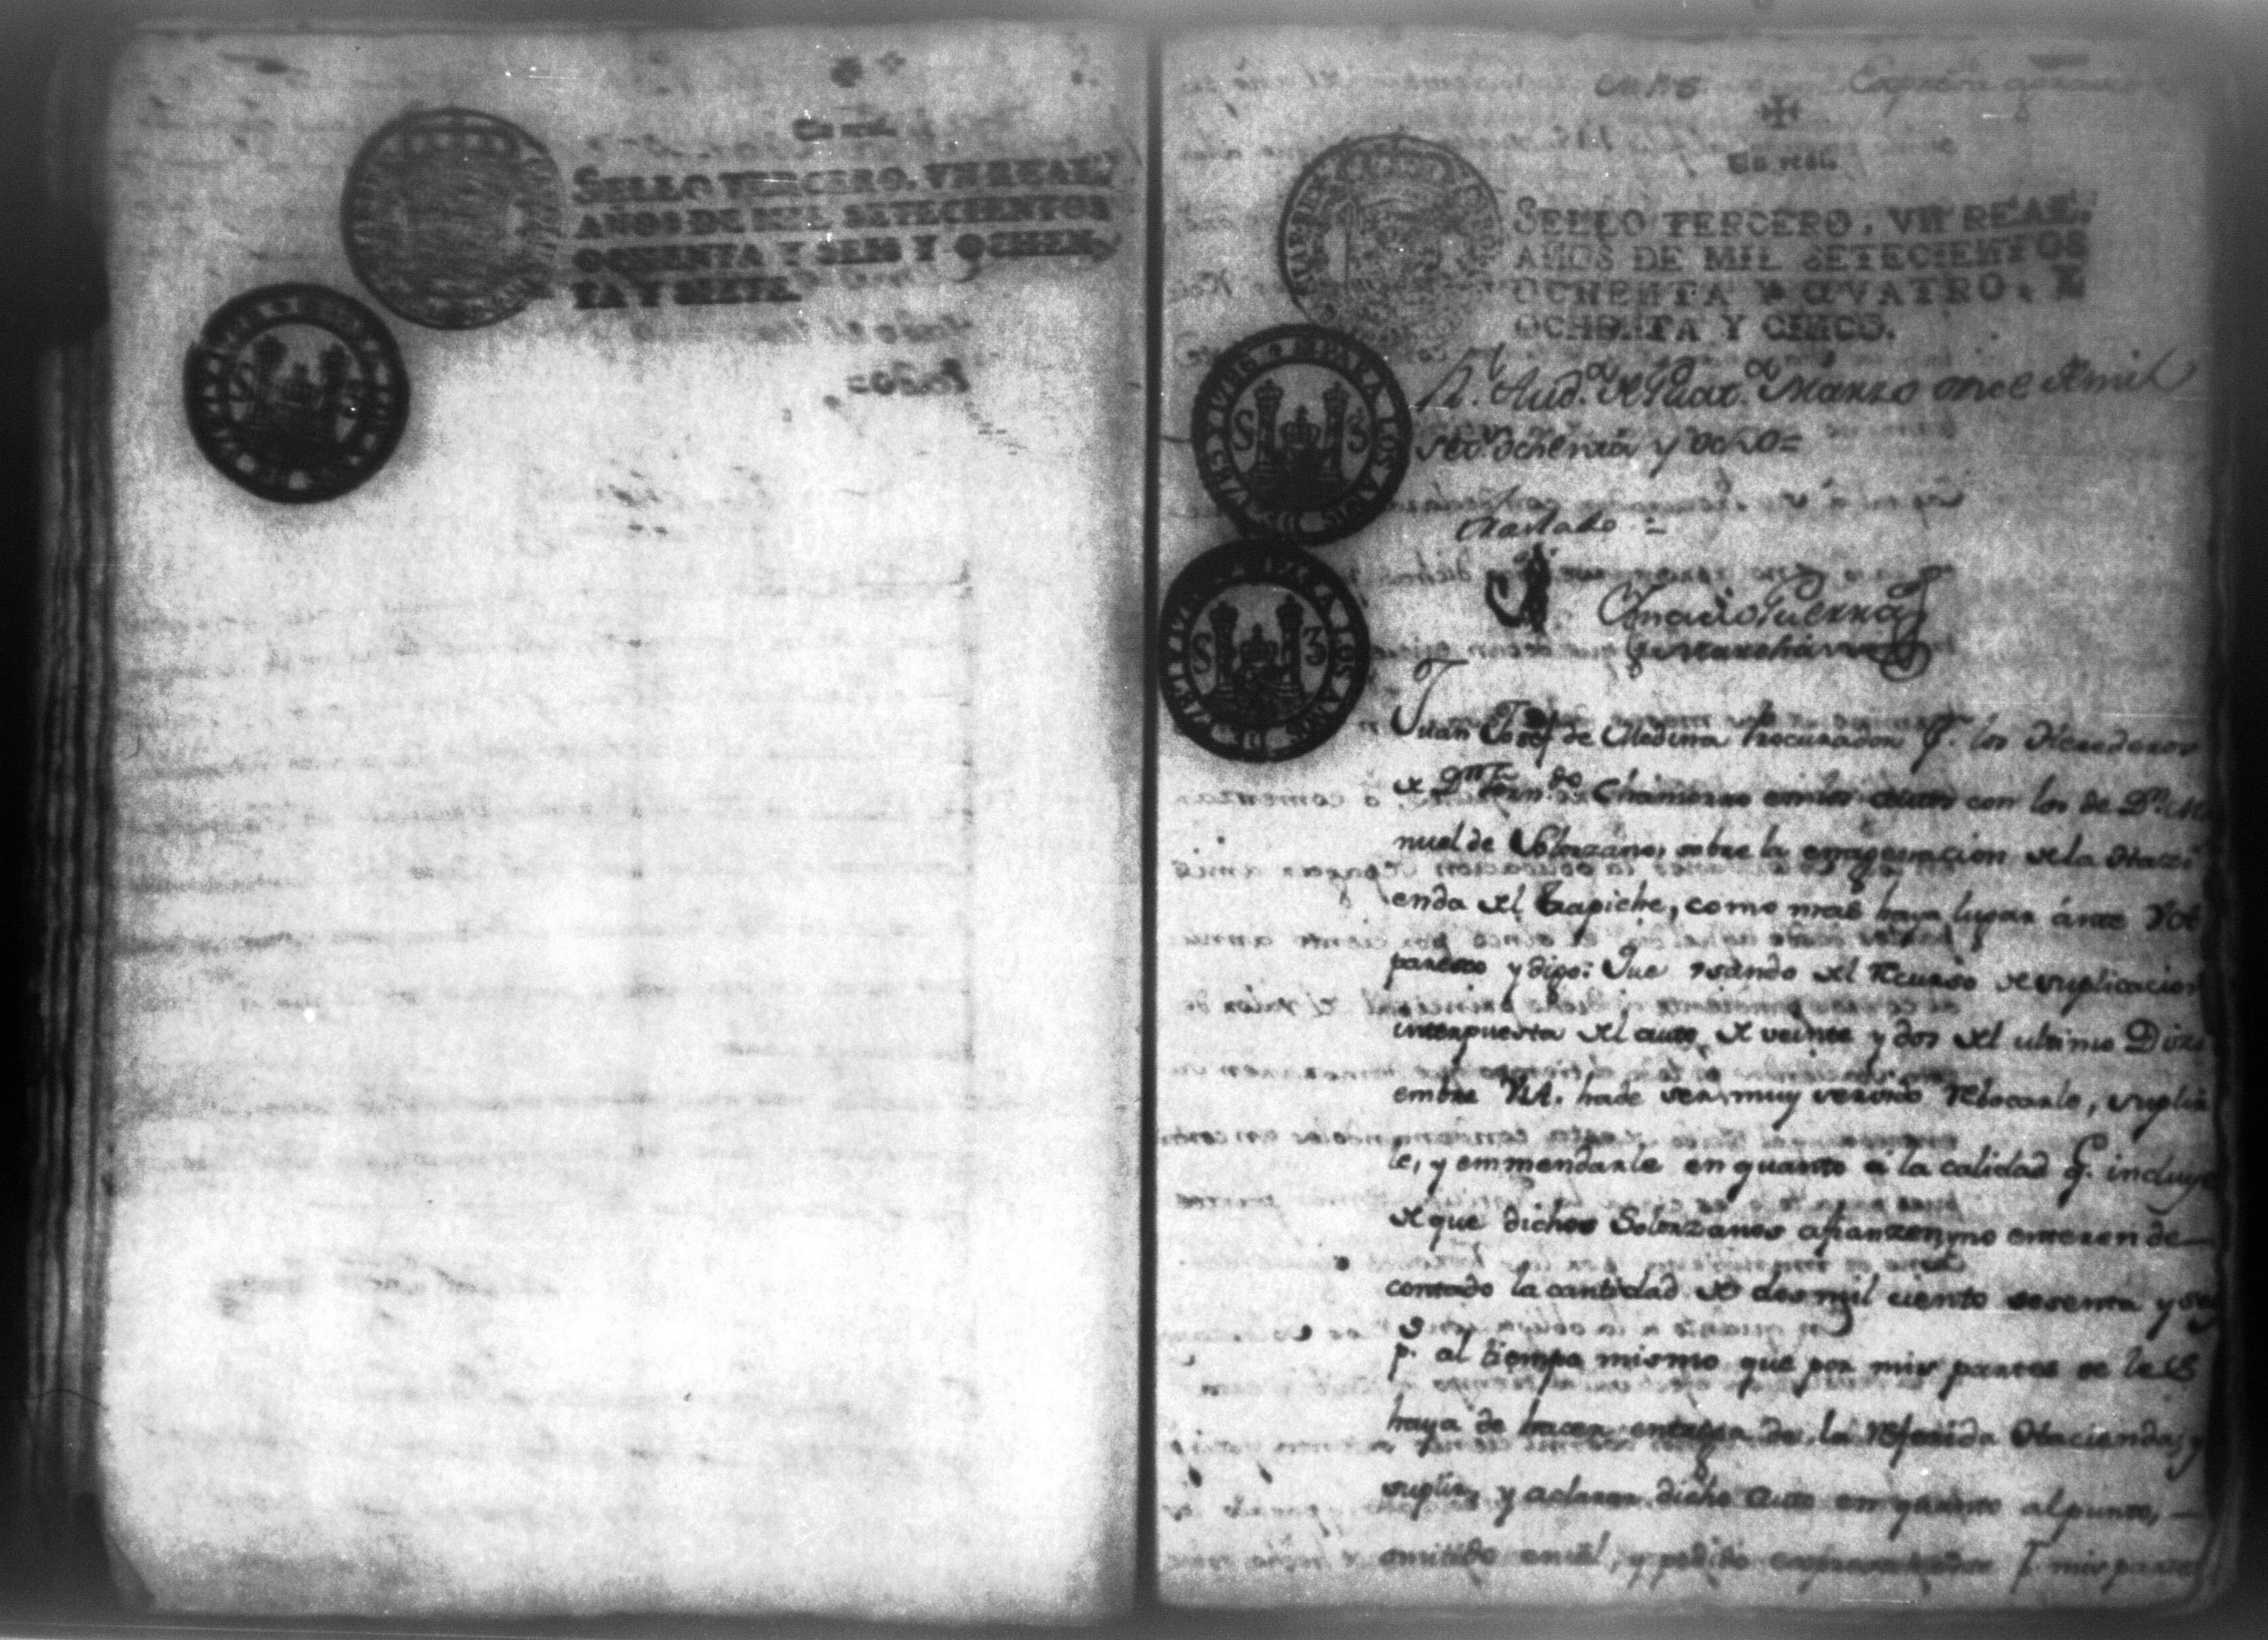 Un real.
SELLO TERCERO, VN REAL,
AÑOS DE MIL SETECIENTOS
OCHENTA Y SEIS Y OCHEN-
TA Y SIETE.
S 3
Un real.
SELLO TERCERO, VN REAL,
AÑOS DE MIL SETECIENTOS
OCHENTA Y QVATRO, Y
OCHENTA Y CINCO.
PARA LOS AÑOS DE
S 3
PARA LOS AÑOS DE
S 3
Rl. Audª. de Guatª. Marzo once de mil
setᵗ. ochenta y ocho=
Traslado =
Ignacio Guerra
y Marchán
Juan Josef de Medina Procurador pʳ. los Herederos
de Dⁿ. Fernᵈᵒ. Chamorro en los autos con los de Dⁿ. Ma
nuel de Solorzano, sobre la enagenacion de la Hazi
enda del Trapiche, como mas haya lugar ánte VA
paresco y digo: Que usando del Recurso de suplicacion
interpuesta del auto de veinte y dos del ultimo Dizi
embre VA. hade ser muy servido Rebocarle, suplir
le, y emmendarle en quanto á la calidad q. incluye
de que dichos Solorzanos afianzen, y no enteren de
contado la cantidad de dos mil ciento sesenta y
pˢ. al tiempo mismo que por mis partes se les
haya de hacer entrega de la Referida Hacienda, y
suplir, y aclarar dicho auto en quanto al punto,
omitido en el, y pedido expresamente pʳ. mis partes